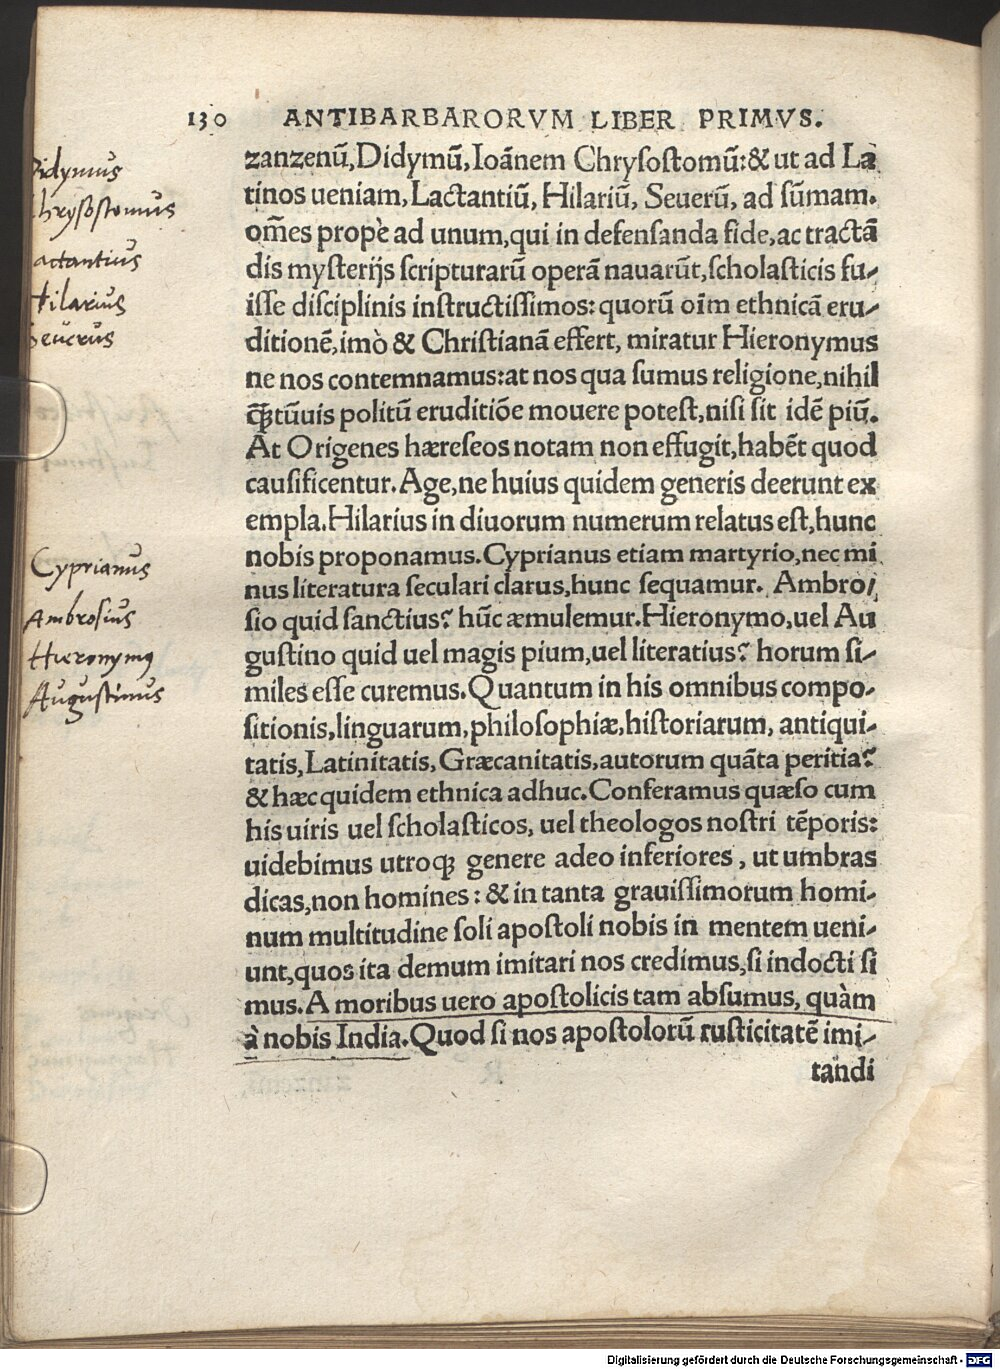 130 ANTIBARBARORVM LIBER PRIMVS.
zanzenū, Didymū, Ioānem Chryſoſtomū: & ut ad La
tinos ueniam, Lactantiū, Hilariū, Seuerū, ad ſūmam.
om̄es prope ad unum, qui in defenſanda fide, ac tractā
dis myſterijs ſcripturarū operā nauarūt, ſcholaſticis fu-
iſſe diſciplinis inſtructiſſimos: quorū oīm ethnicā eru-
ditionē, imò & Chriſtianā effert, miratur Hieronymus
ne nos contemnamus: at nos qua ſumus religione, nihil
ꝙ̄tūuis politū eruditiōe mouere poteſt, niſi ſit idē piū.
At Origenes hæreſeos notam non effugit, habēt quod
cauſificentur. Age, ne huius quidem generis deerunt ex
empla. Hilarius in diuorum numerum relatus eſt, hunc
nobis proponamus. Cyprianus etiam martyrio, nec mi
nus literatura ſeculari clarus, hunc ſequamur. Ambro/
ſio quid ſanctius? hūc æmulemur. Hieronymo, uel Au
guſtino quid uel magis pium, uel literatius? horum ſi-
miles eſſe curemus. Quantum in his omnibus compo-
ſitionis, linguarum, philoſophiæ, hiſtoriarum, antiqui-
tatis, Latinitatis, Græcanitatis, autorum quāta peritia?
& hæc quidem ethnica adhuc. Conferamus quæſo cum
his uiris uel ſcholaſticos, uel theologos noſtri tēporis:
uidebimus utroqꝫ genere adeo inferiores, ut umbras
dicas, non homines: & in tanta grauiſſimorum homi-
num multitudine ſoli apoſtoli nobis in mentem ueni-
unt, quos ita demum imitari nos credimus, ſi indocti ſi
mus. A moribus uero apoſtolicis tam abſumus, quàm
à nobis India. Quod ſi nos apoſtolorū ruſticitatē imi-
tandi
Didymus
Chrysostomus
Lactantius
Hilarius
Seuerus
Cyprianus
Ambrosius
Hieronymus
Augustinus
Digitalisierung gefördert durch die Deutsche Forschungsgemeinschaft - DFG